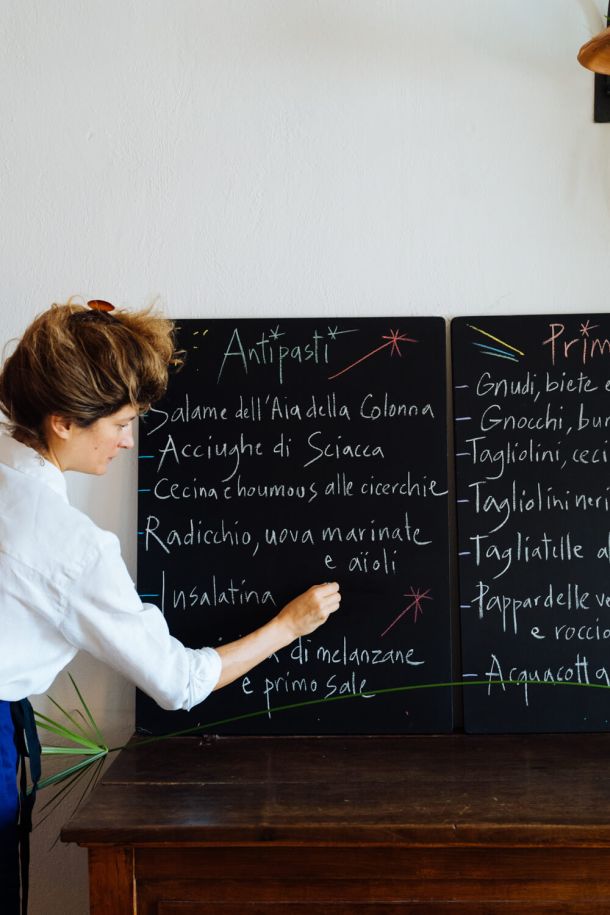 Antipasti
Salame dell'Aia della Colonna
Acciughe di Sciacca
Cecina e houmous alle cicerchie
Radicchio, uova marinate
e aïoli
Insalatina
di melanzane
e primo sale
Gnudi, biete e
Gnocchi,
Tagliolini, ceci
Tagliolini neri
Tagliatelle
Pappardelle
e
Acquacotta